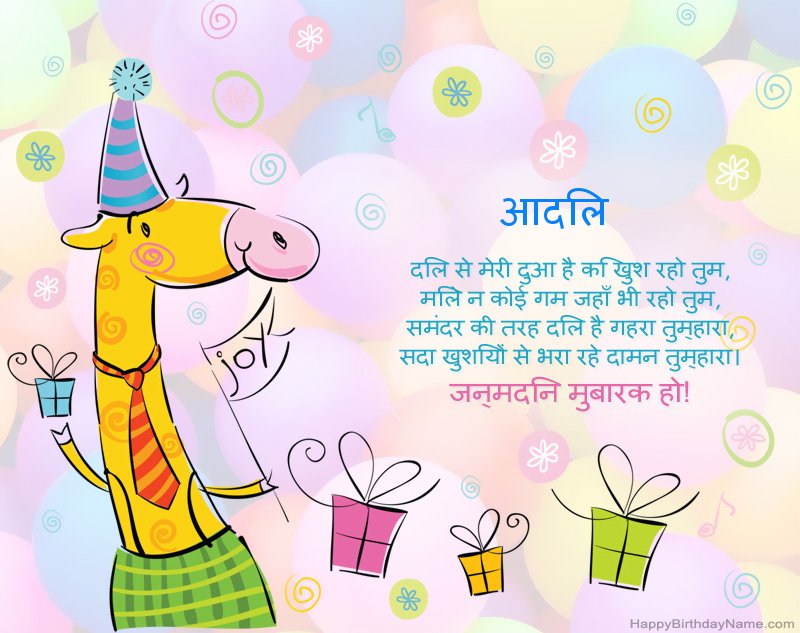 आदलि
दलि से मेरी दुआ है कि खुश रहो तुम,
मलिे न कोई गम जहाँ भी रहो तुम,
समंदर की तरह दलि है गहरा तुम्हारा,
सदा खुशयिों से भरा रहे दामन तुम्हारा।
जन्मदनि मुबारक हो!
joy
HappyBirthdayName.com